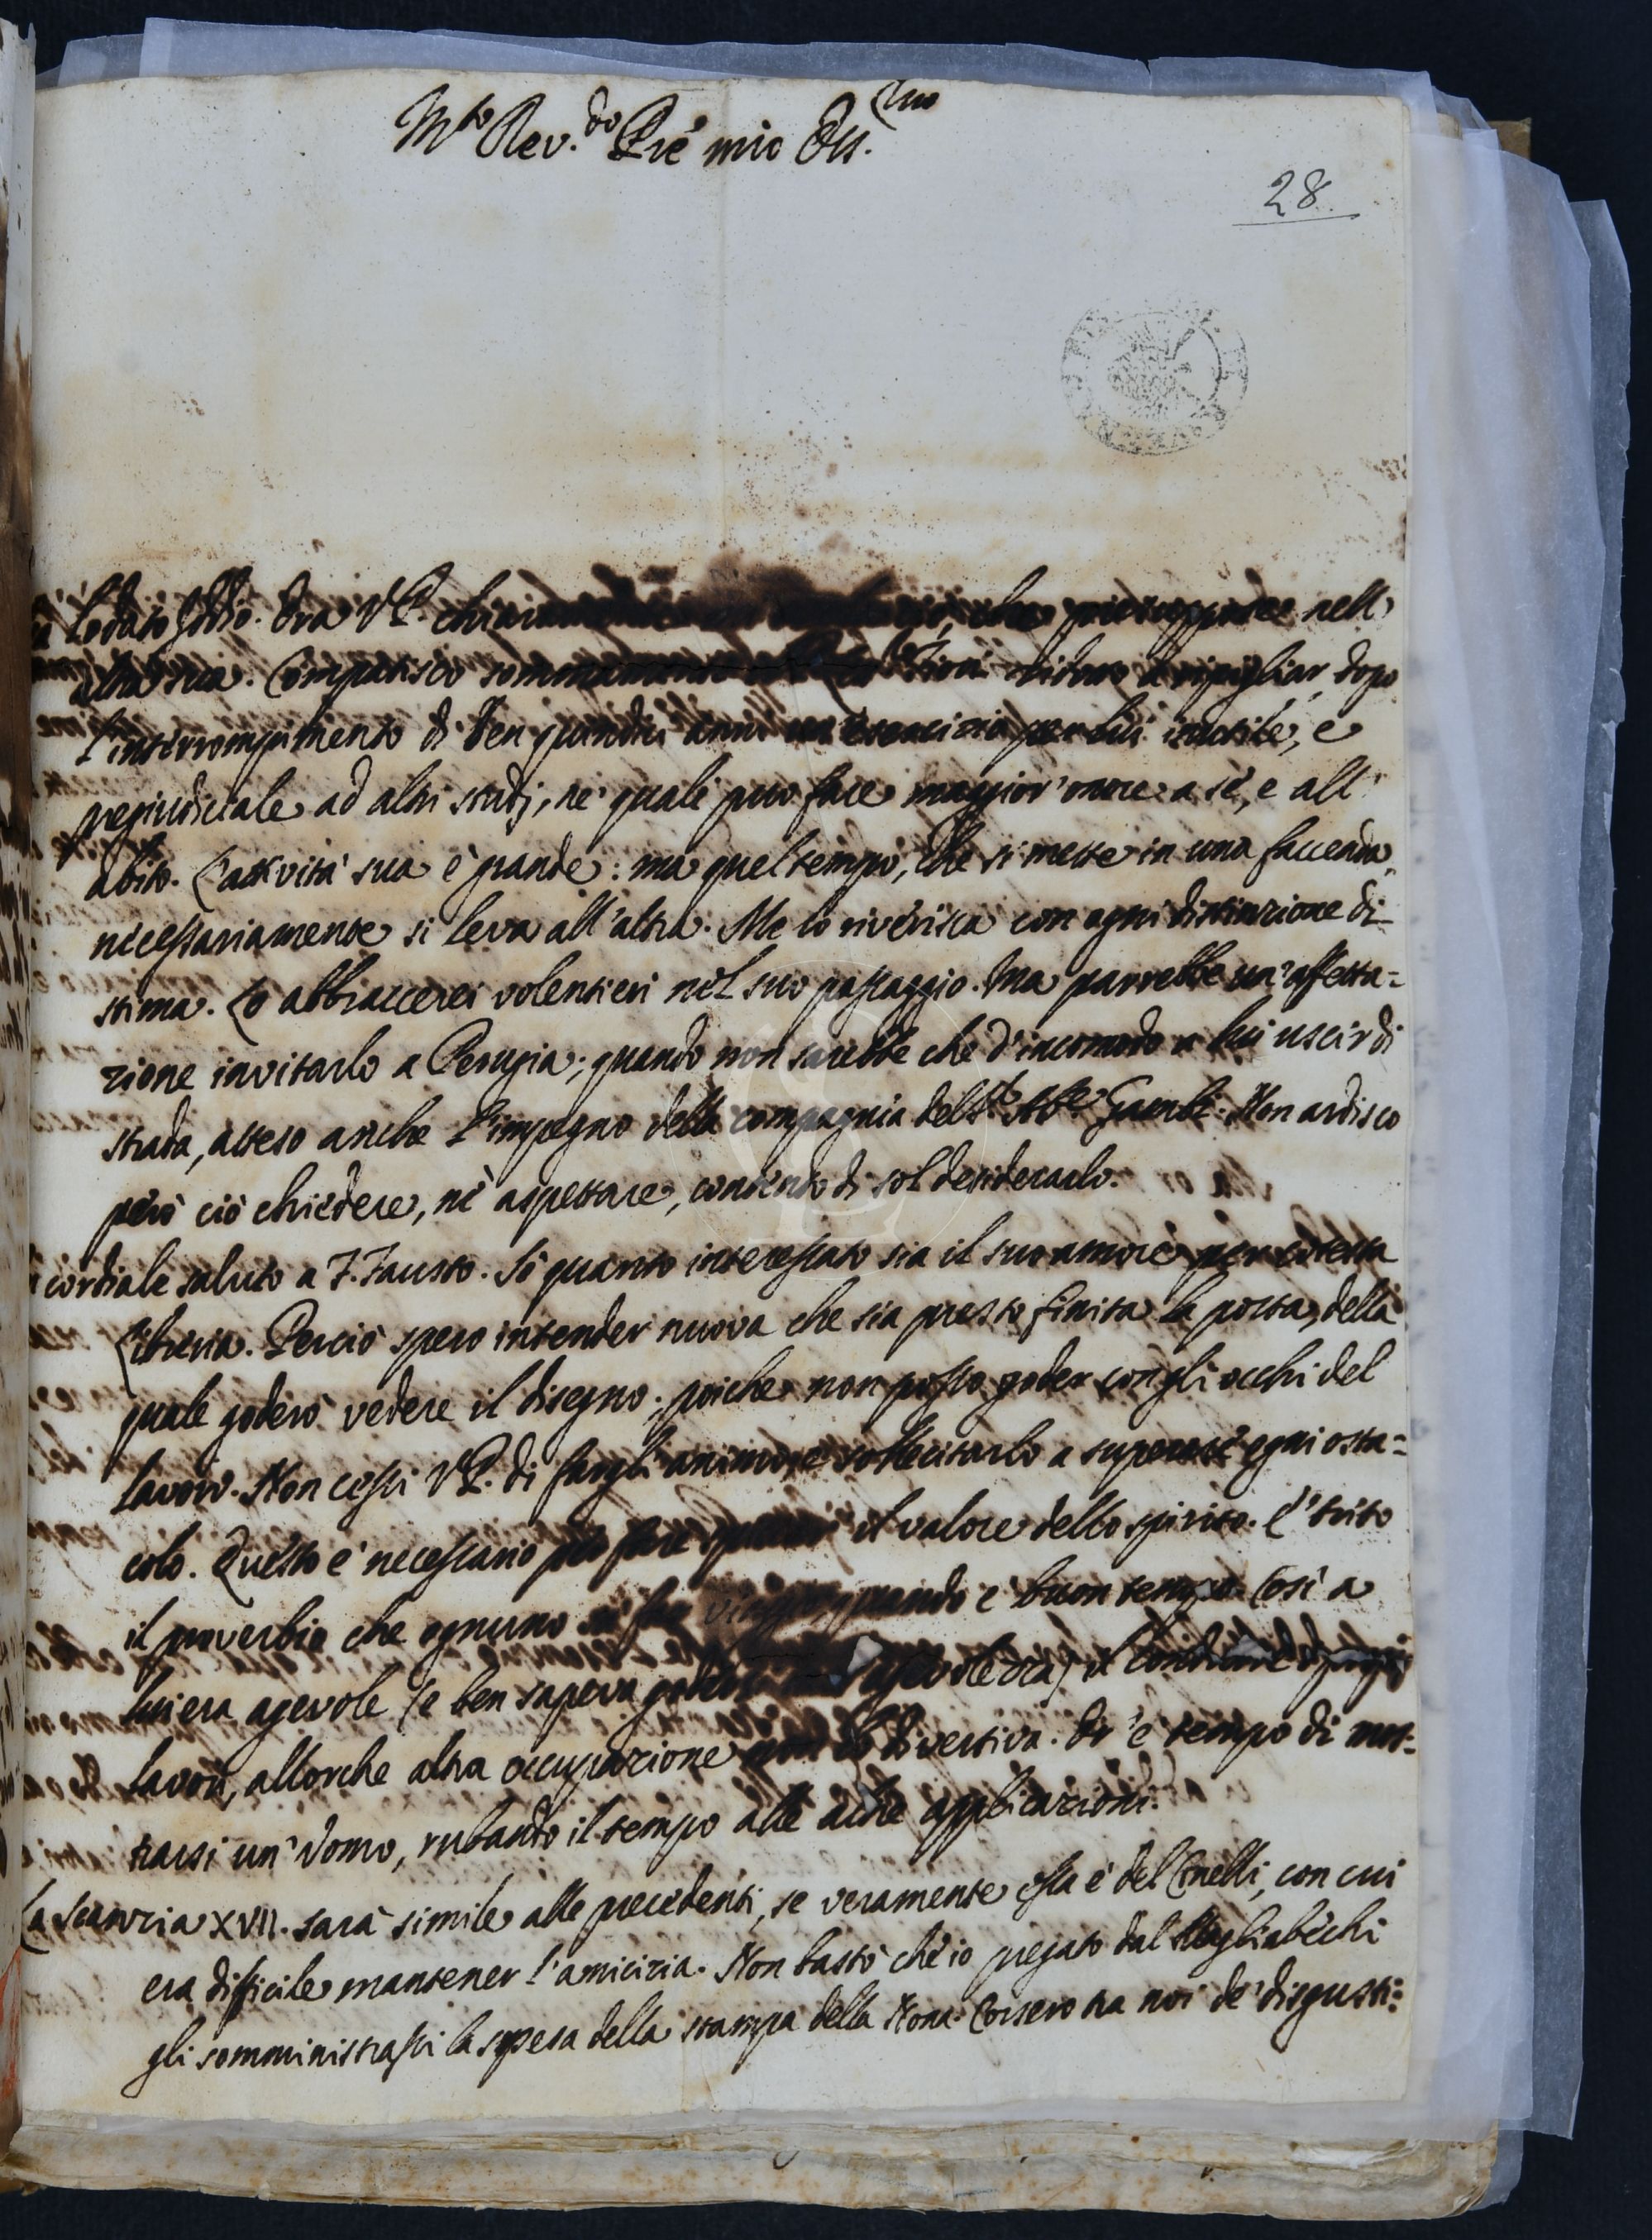 M.to Rev.do Pre' mio Oss.mo
28
Lodato Iddio. Ora V.P. nell'
altra sua. Compatisco ripigliar dopo
l'interrompimento di ben quindici anni un esercizio per lui inutile, e
pregiudiciale ad altri studj, ne' quali può fare maggior' onore a sè, e all'
abito. L'attività sua è grande: ma quel tempo, che si mette in una faccenda,
necessariamente si leva all'altra. Me lo riverisca con ogni distinzione di
stima. Lo abbraccerei volentieri nel suo passaggio. Ma parrebbe un'affetta=
zione invitarlo a Perugia; quando non sarebbe che d'incomodo a lui uscir di
strada, atteso anche l'impegno della compagnia del S.r Ab.e Gambi. Non ardisco
però ciò chiedere, nè aspettare, contento di sol desiderarlo.
cordiale saluto a F. Fausto. Sò quanto interessato sia il suo amore per cotesta
Libreria. Perciò spero intender nuova che sia presto finita la porta, della
quale goderò vedere il disegno; poiche non posso goder con gli occhi del
lavoro. Non cessi V.P. di fargli animo, e sollecitarlo a superare ogni osta=
colo. Questo è necessario il valore dello spirito. È trito
il proverbio che ognuno quando è buon tempo. Così a
lui era agevole (e ben sapeva agevolezza) il
lavori, allorche altra occupazione non lo divertiva. Or'è tempo di mos=
trarsi un'Uomo, rubando il tempo alle altre applicazioni.
La Scanzia XVII. sarà simile alle precedenti, se veramente essa è del Cinelli, con cui
era difficile mantener l'amicizia. Non bastò ch'io pregato dal Magliabechi
gli somministrassi la spesa della stampa della Nona. Corsero tra noi de' disgusti: